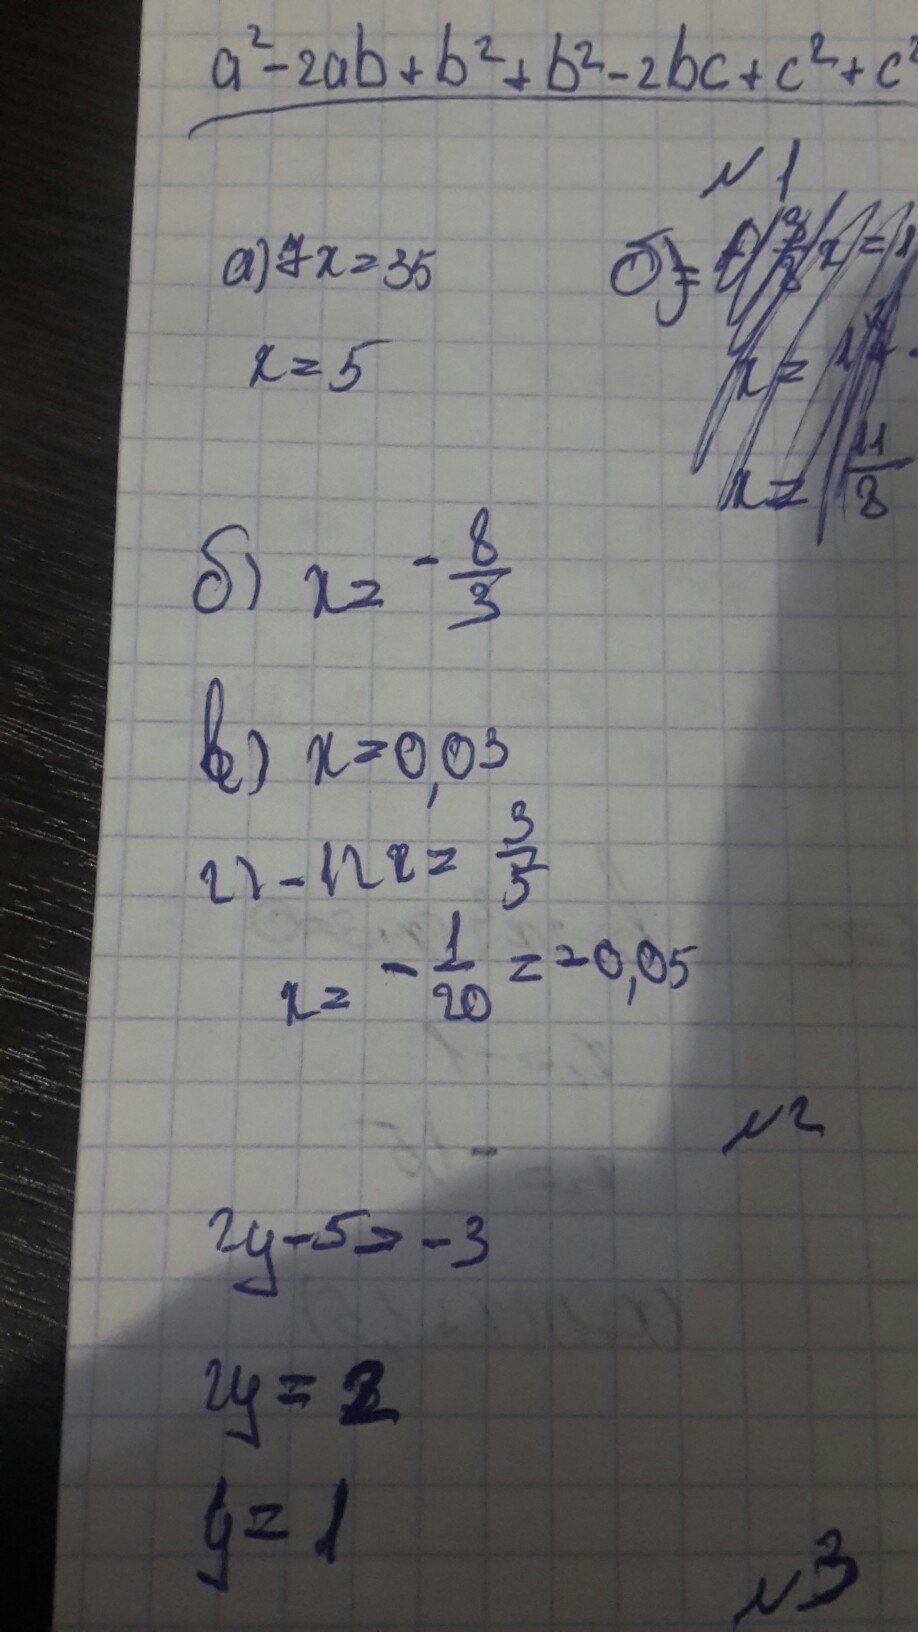 a²-2ab+b²+b²-2bc+c²+c²
№1
а) 7x=35
x=5
б)
x=
x= 11/8
б) x= -8/3
в) x=0,03
г) -12x= 3/5
x= -1/20 = -0,05
№2
2y-5=-3
2y=2
y=1
№3